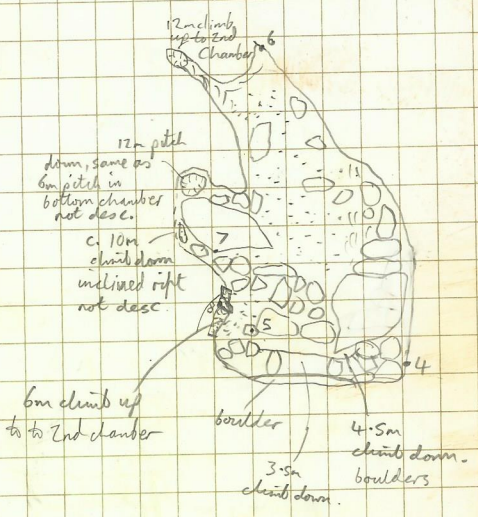 12m climb
up to 2nd
Chamber
6
12m pitch
down, same as
6m pitch in
bottom chamber
not desc.
c. 10m
climb down
inclined rift
not desc
7
5
4
6m climb up
to to 2nd chamber
boulder
3.5m
climb down.
4.5m
climb down.
boulders